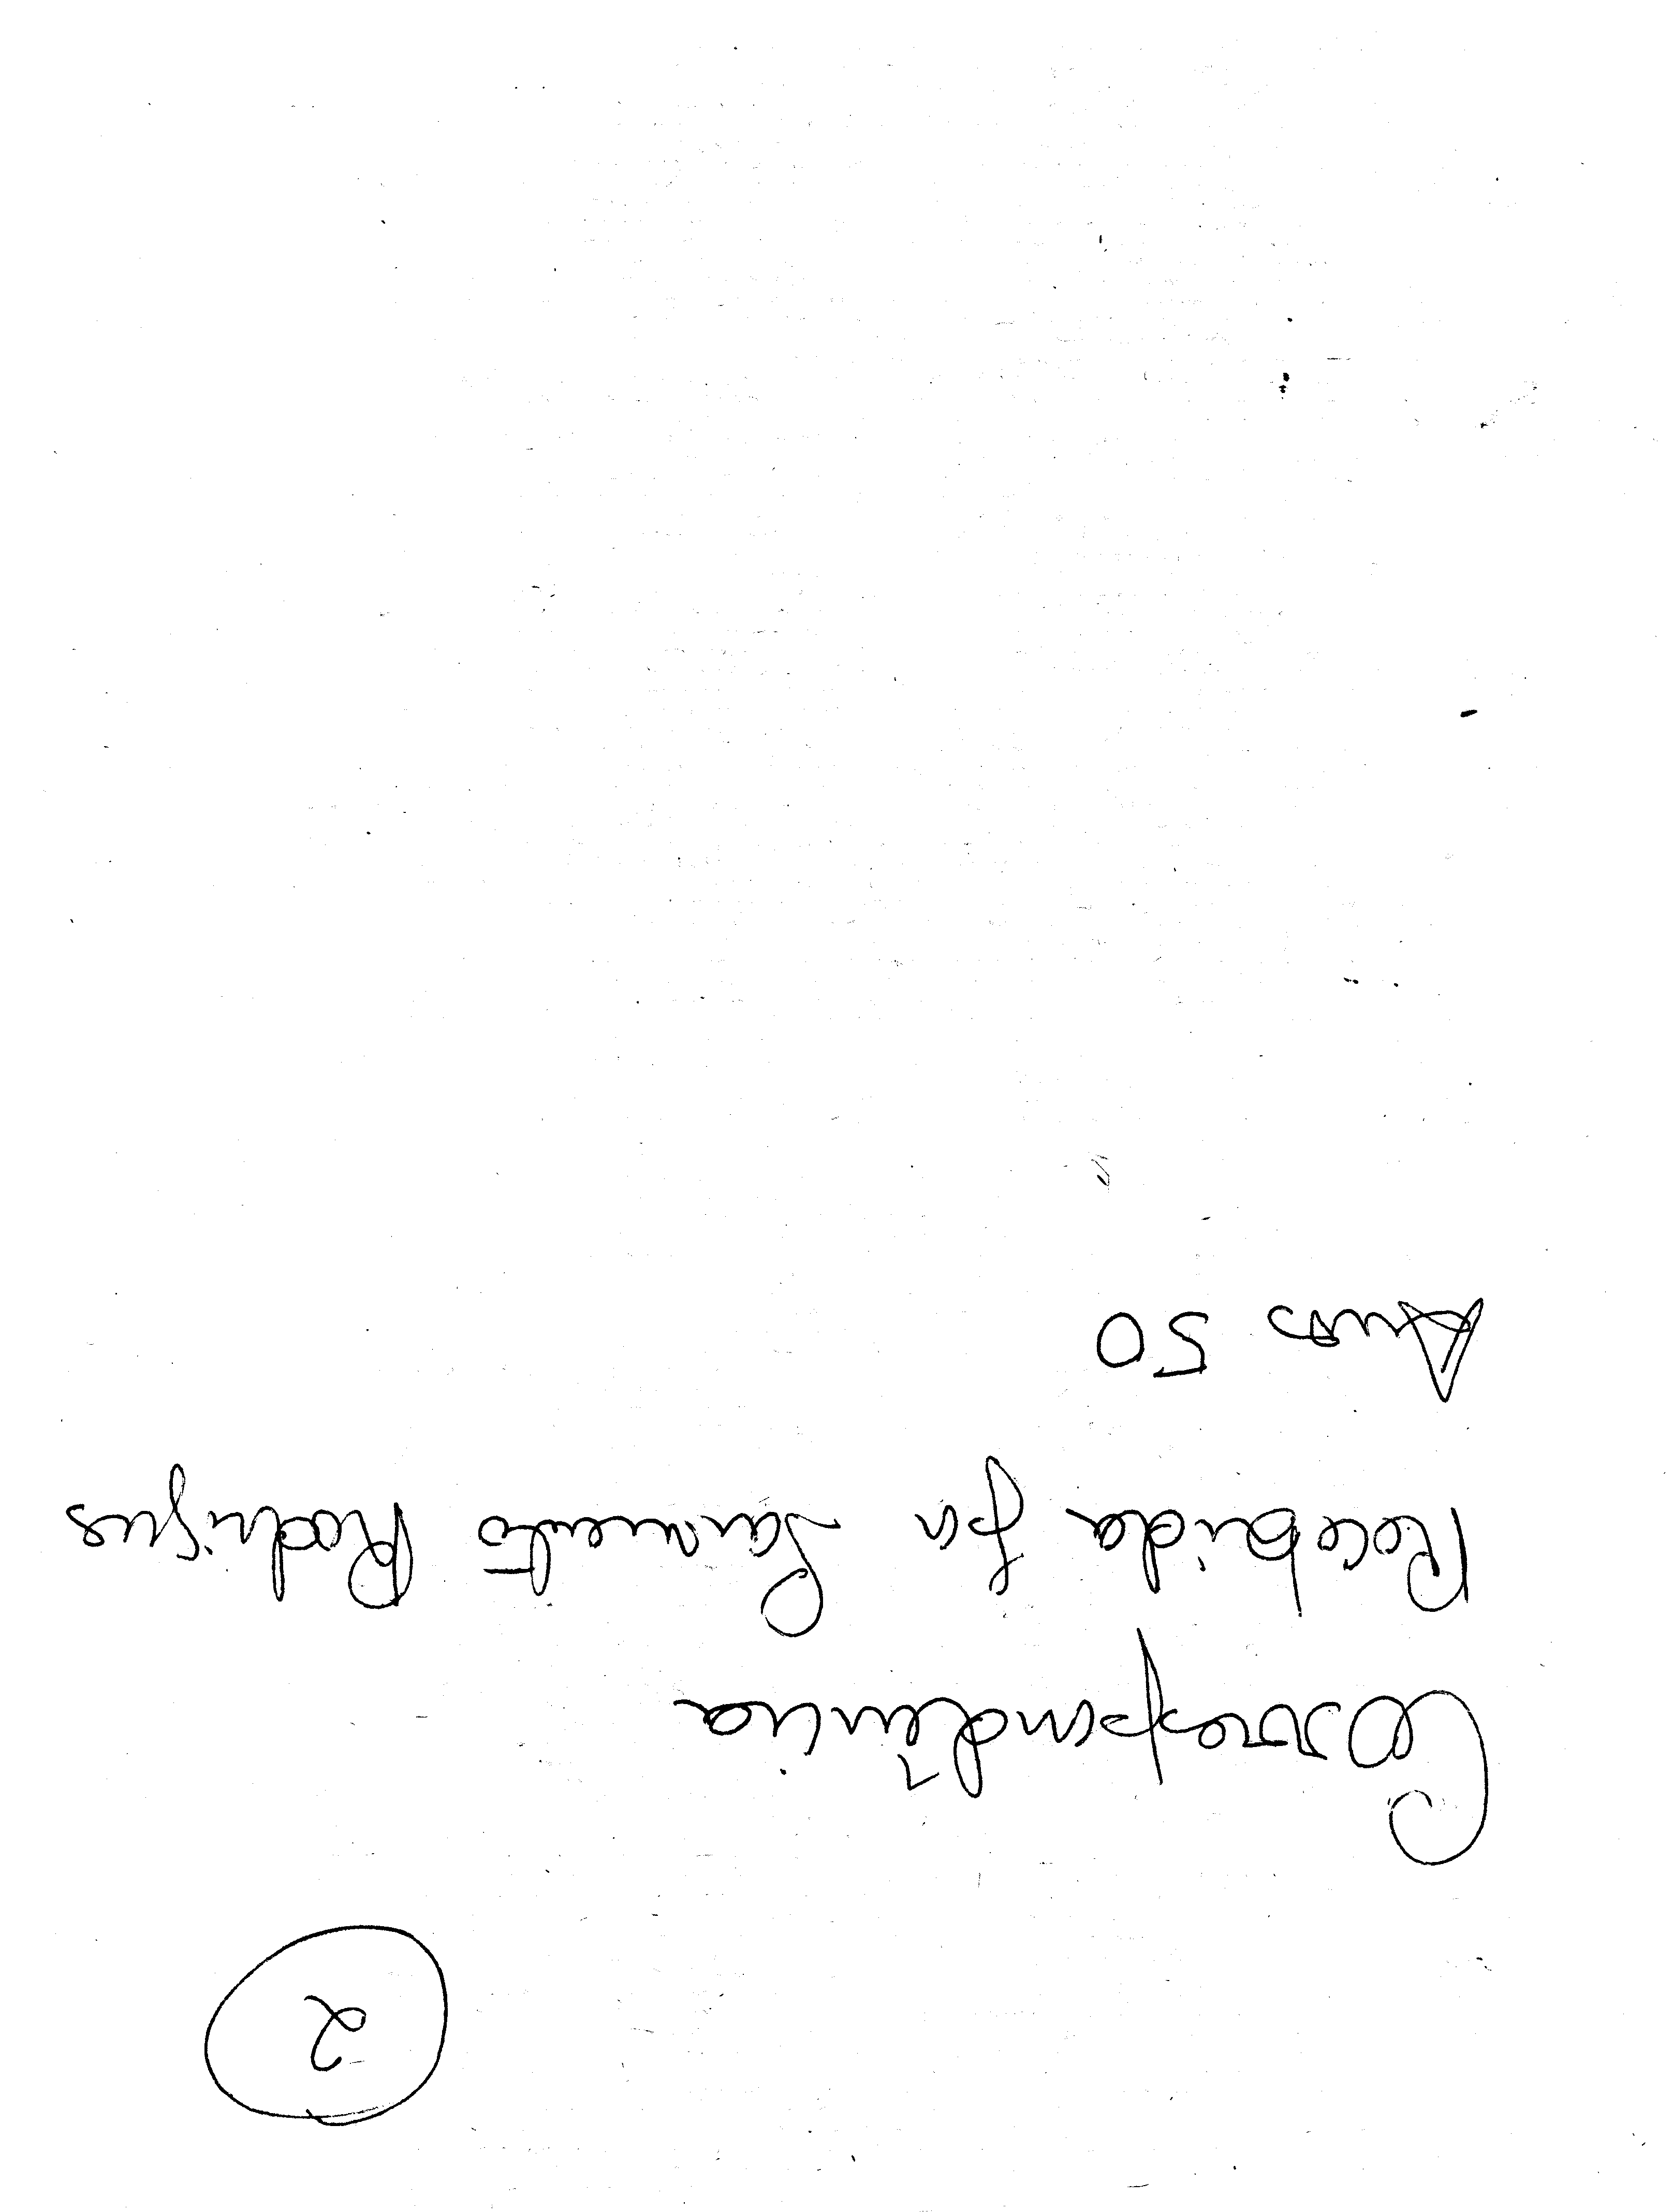 2
Correspondência
Recebida por Sarmento Rodrigues
Anos 50